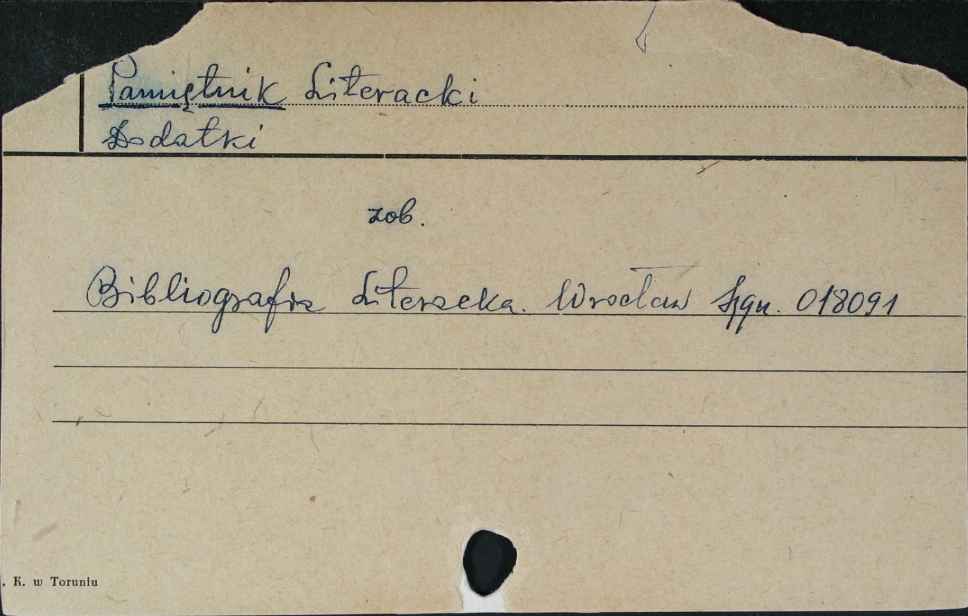 Pamiętnik Literacki
Dodatki
zob.
Bibliografia Literacka. Wrocław Sygn. 018091
. K. w Toruniu